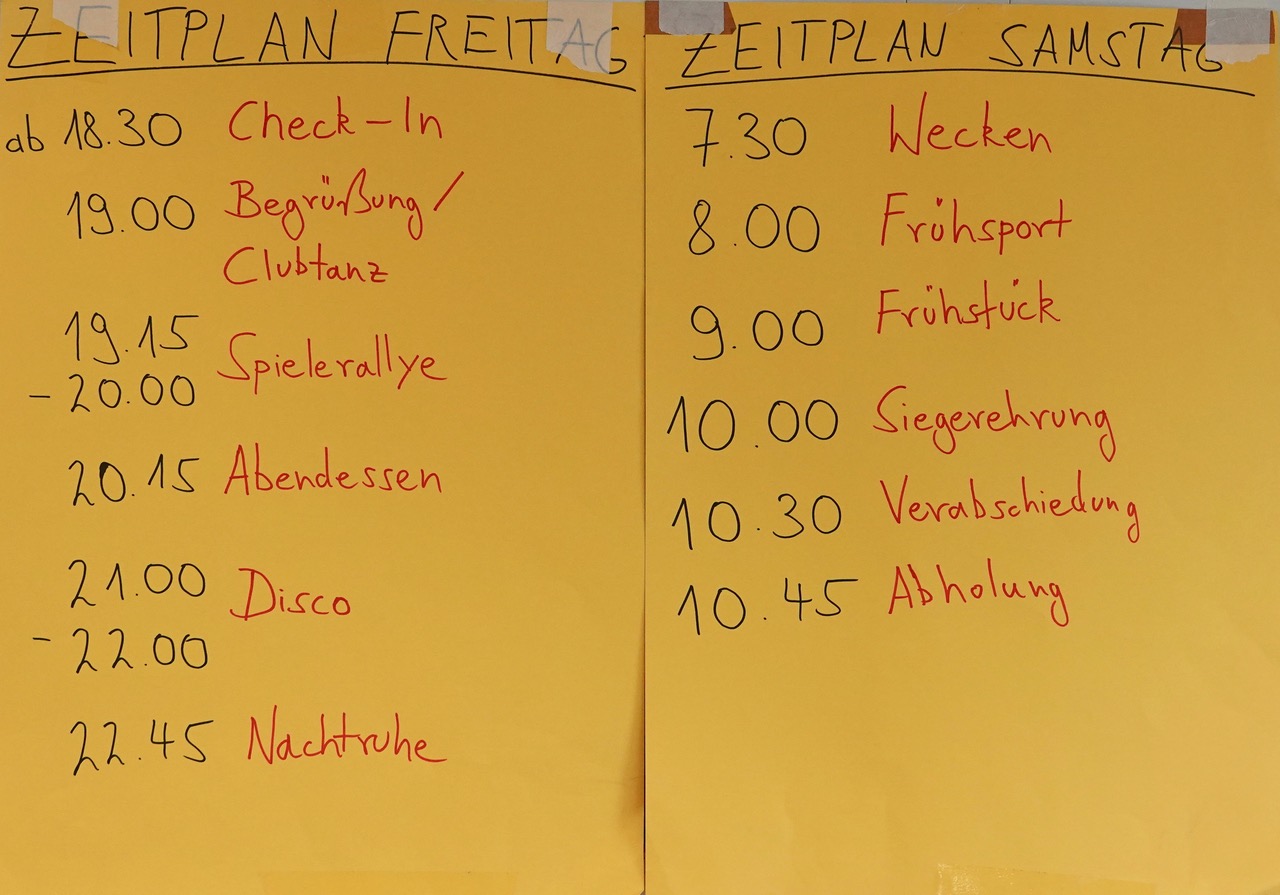 ZEITPLAN FREITAG
ab 18.30 Check-In
19.00 Begrüßung/
Clubtanz
19.15
- 20.00 Spielerallye
20.15 Abendessen
21.00
- 22.00 Disco
22.45 Nachtruhe
ZEITPLAN SAMSTAG
7.30 Wecken
8.00 Frühsport
9.00 Frühstück
10.00 Siegerehrung
10.30 Verabschiedung
10.45 Abholung